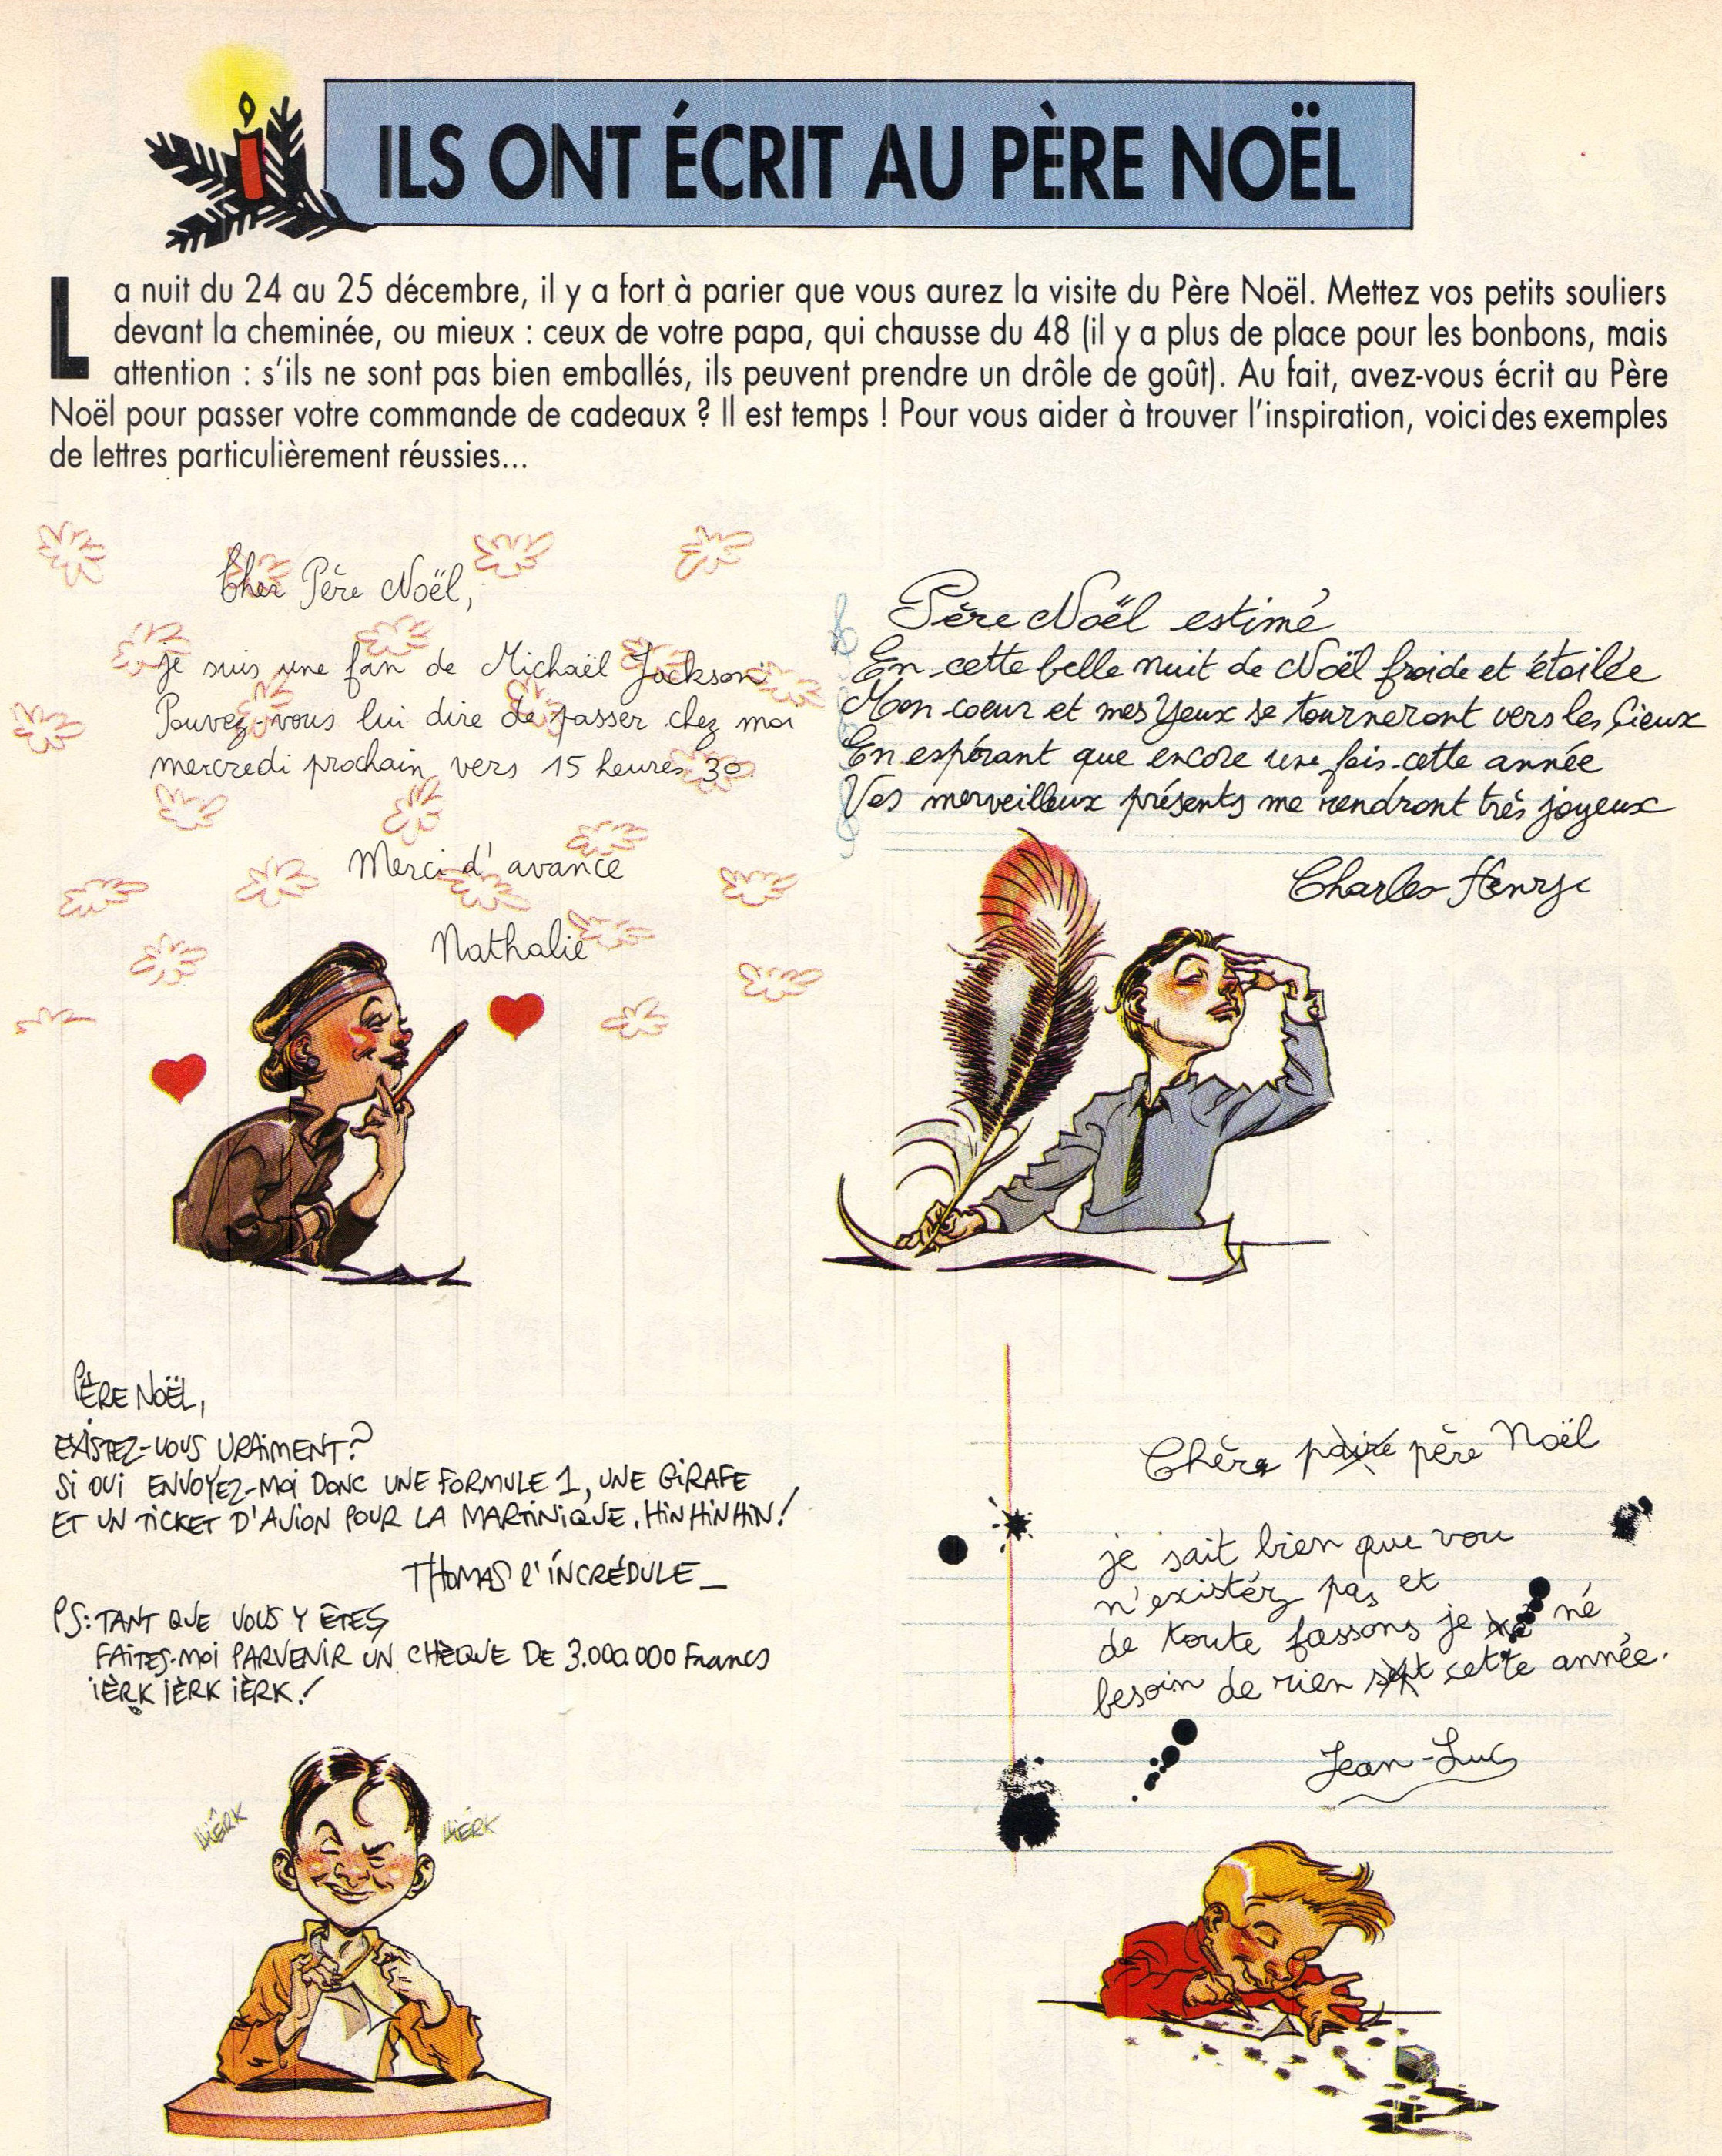 ILS ONT ÉCRIT AU PÈRE NOËL
La nuit du 24 au 25 décembre, il y a fort à parier que vous aurez la visite du Père Noël. Mettez vos petits souliers
devant la cheminée, ou mieux : ceux de votre papa, qui chausse du 48 (il y a plus de place pour les bonbons, mais
attention : s'ils ne sont pas bien emballés, ils peuvent prendre un drôle de goût). Au fait, avez-vous écrit au Père
Noël pour passer votre commande de cadeaux ? Il est temps ! Pour vous aider à trouver l'inspiration, voici des exemples
de lettres particulièrement réussies...
Cher Père Noël,
Je suis une fan de Michaël Jackson
Pouvez-vous lui dire de passer chez moi
mercredi prochain vers 15 heures 30
Merci d'avance
Nathalie
Père Noël estimé
En cette belle nuit de Noël froide et étoilée
Mon coeur et mes yeux se tourneront vers les Cieux
En espérant que encore une fois cette année
Vos merveilleux présents me rendront très joyeux
Charles Henry
PÈRE NOËL,
EXISTEZ-VOUS VRAIMENT ?
SI OUI ENVOYEZ-MOI DONC UNE FORMULE 1, UNE GIRAFE
ET UN TICKET D'AVION POUR LA MARTINIQUE. HIN HIN HIN !
THOMAS l'INCRÉDULE_
PS: TANT QUE VOUS Y ÊTES
FAITES-MOI PARVENIR UN CHÈQUE DE 3.000.000 Francs
IÈRK IÈRK IÈRK !
HIÊRK
HIÉRK
Chère pairé père Noël
je sait bien que vou
n'existéz pas et
de toute fassons je né
besoin de rien set cette année.
Jean-Luc